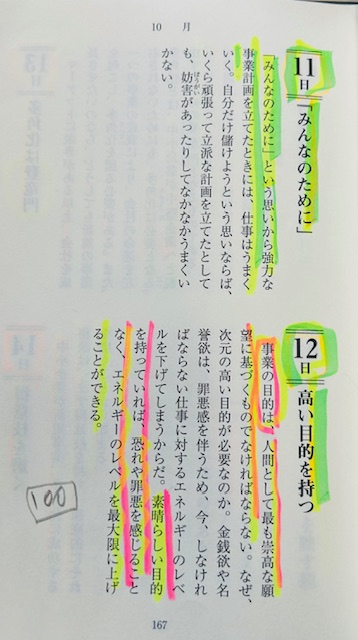 10 月
11日 「みんなのために」
「みんなのために」という思いから強力な
事業計画を立てたときには、仕事はうまく
いく。自分だけ儲けようという思いならば、
いくら頑張って立派な計画を立てたとして
も、妨害があったりしてなかなかうまくい
かない。
12日 高い目的を持つ
事業の目的は、人間として最も崇高な願
望に基づくものでなければならない。なぜ、
次元の高い目的が必要なのか。金銭欲や名
誉欲は、罪悪感を伴うため、今、しなけれ
ばならない仕事に対するエネルギーのレベ
ルを下げてしまうからだ。素晴らしい目的
を持っていれば、恐れや罪悪を感じること
なく、エネルギーのレベルを最大限に上げ
ることができる。
100
167